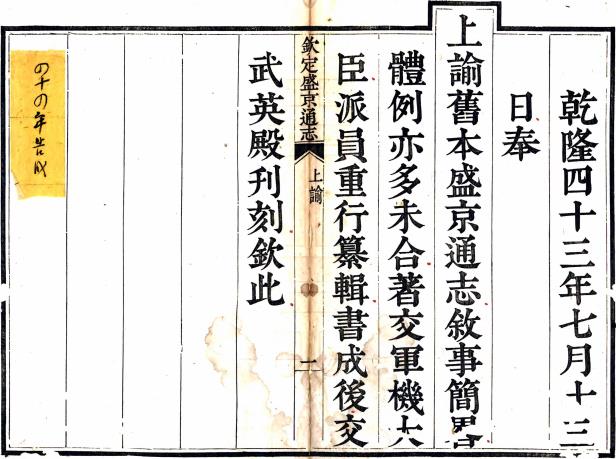 乾隆四十三年七月十三
日奉
上諭舊本盛京通志敘事簡畧
體例亦多未合著交軍機大
臣派員重行纂輯書成後交
武英殿刊刻欽此
欽定盛京通志
上諭
二
四十四年告成